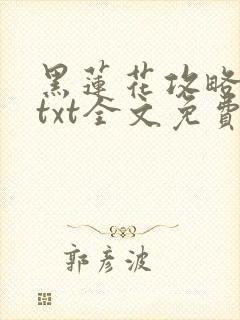 黑蓮花攻略
txt全文免費
郭彦波